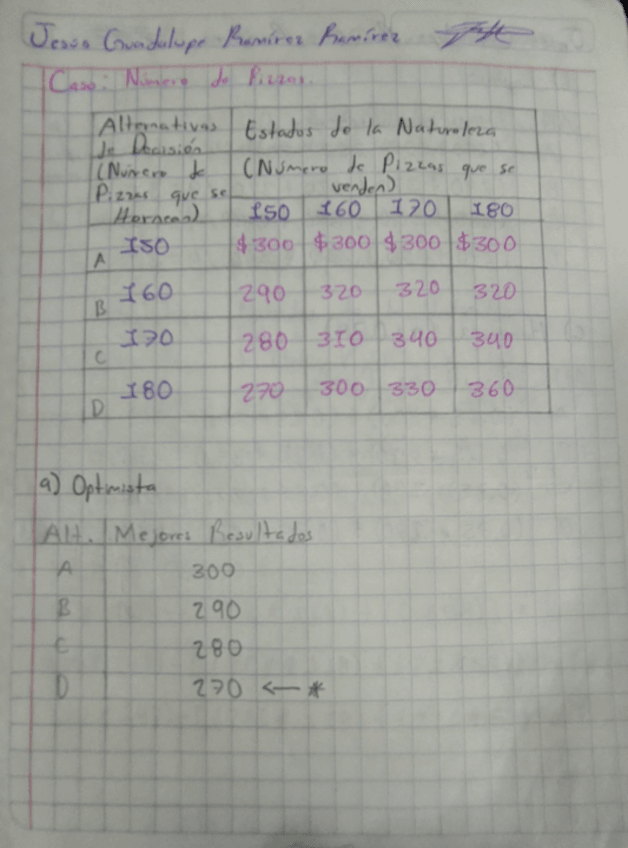 Jesús Guadalupe Ramírez Ramírez
Caso: Número de Pizzas.
Alternativas de Decisión (Número de Pizzas que se Hornean)
Estados de la Naturaleza
(Número de Pizzas que se venden)
150 160 170 180
A 150 $300 $300 $300 $300
B 160 290 320 320 320
C 170 280 310 340 340
D 180 270 300 330 360
a) Optimista
Alt. Mejores Resultados
A 300
B 290
C 280
D 270 ← *